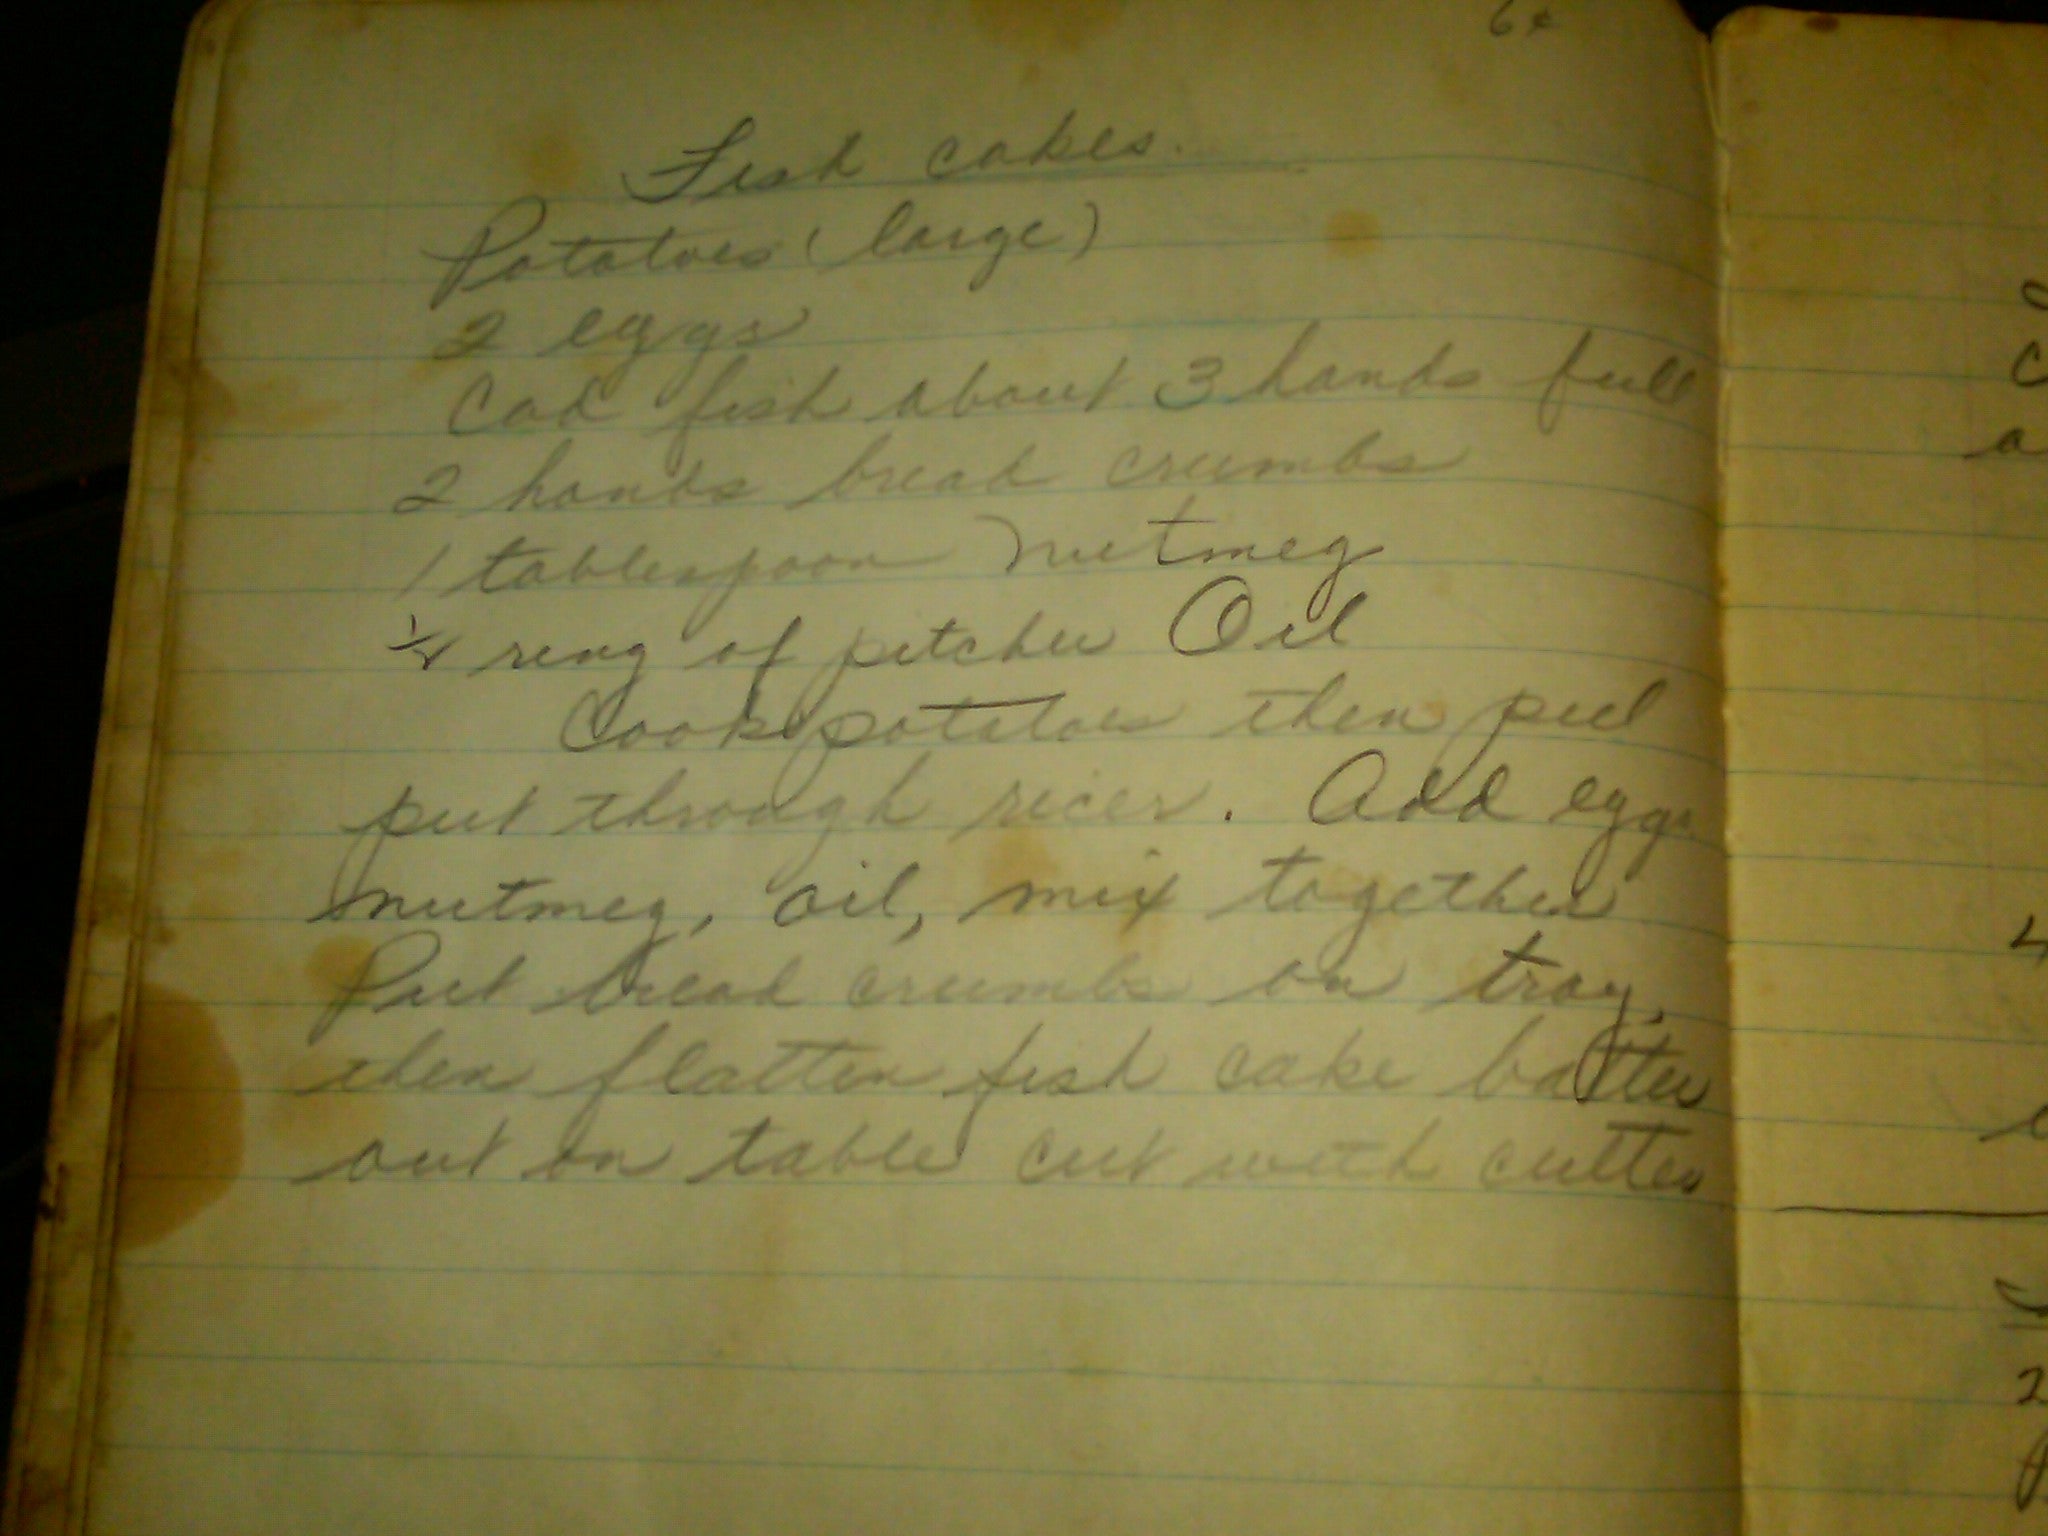 Fish cakes.
Potatoes (large)
2 eggs
Cod fish about 3 hands full
2 hands bread crumbs
1 tablespoon Nutmeg
ring of pitcher Oil
Cook potatoes then peel
put through ricer. Add eggs
nutmeg, oil, mix together
Put bread crumbs on tray,
then flatten fish cake batter
out on table cut with cutter